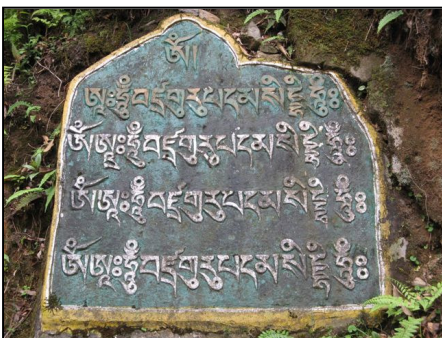 ཨོཾ།
ཨཱཿཧཱུྃ་བཛྲ་གུ་རུ་པདམ་སིདྡྷི་ཧཱུྃ༔
ཨོཾ་ཨཱཿཧཱུྃ་བཛྲ་གུ་རུ་པདམ་སིདྡྷི་ཧཱུྃ༔
ཨོཾ་ཨཱཿཧཱུྃ་བཛྲ་གུ་རུ་པདམ་སིདྡྷི་ཧཱུྃ༔
ཨོཾ་ཨཱཿཧཱུྃ་བཛྲ་གུ་རུ་པདམ་སིདྡྷི་ཧཱུྃ༔